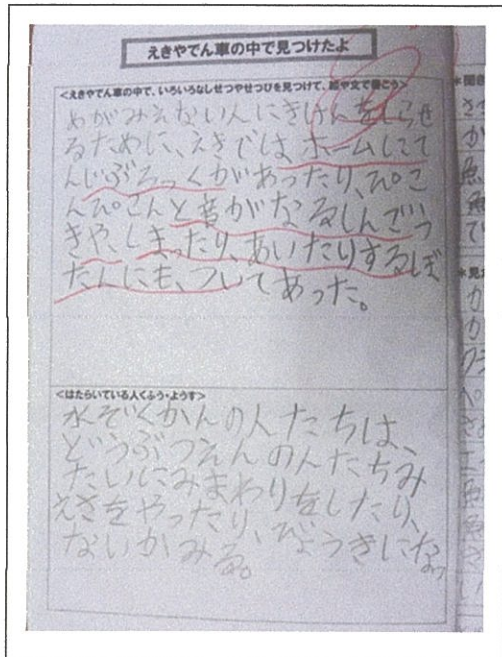 えきやでん車の中で見つけたよ
<えきやでん車の中で、いろいろなしせつやせつびを見つけて、絵や文で書こう>
めがみえない人にきけんをしらせ
るために、えきでは、ホームしてて
んじぶろっくがあったり、ぴこ
んぴこんと音がなるしんごう
きや、しまったり、あいたりするぼ
たんにも、ついてあった。
<はたらいている人くふう・ようす>
水ぞくかんの人たちは、
どうぶつえんの人たちみ
たいにみまわりをしたり、
えさをやったり、びょうきになっ
ないかみる。